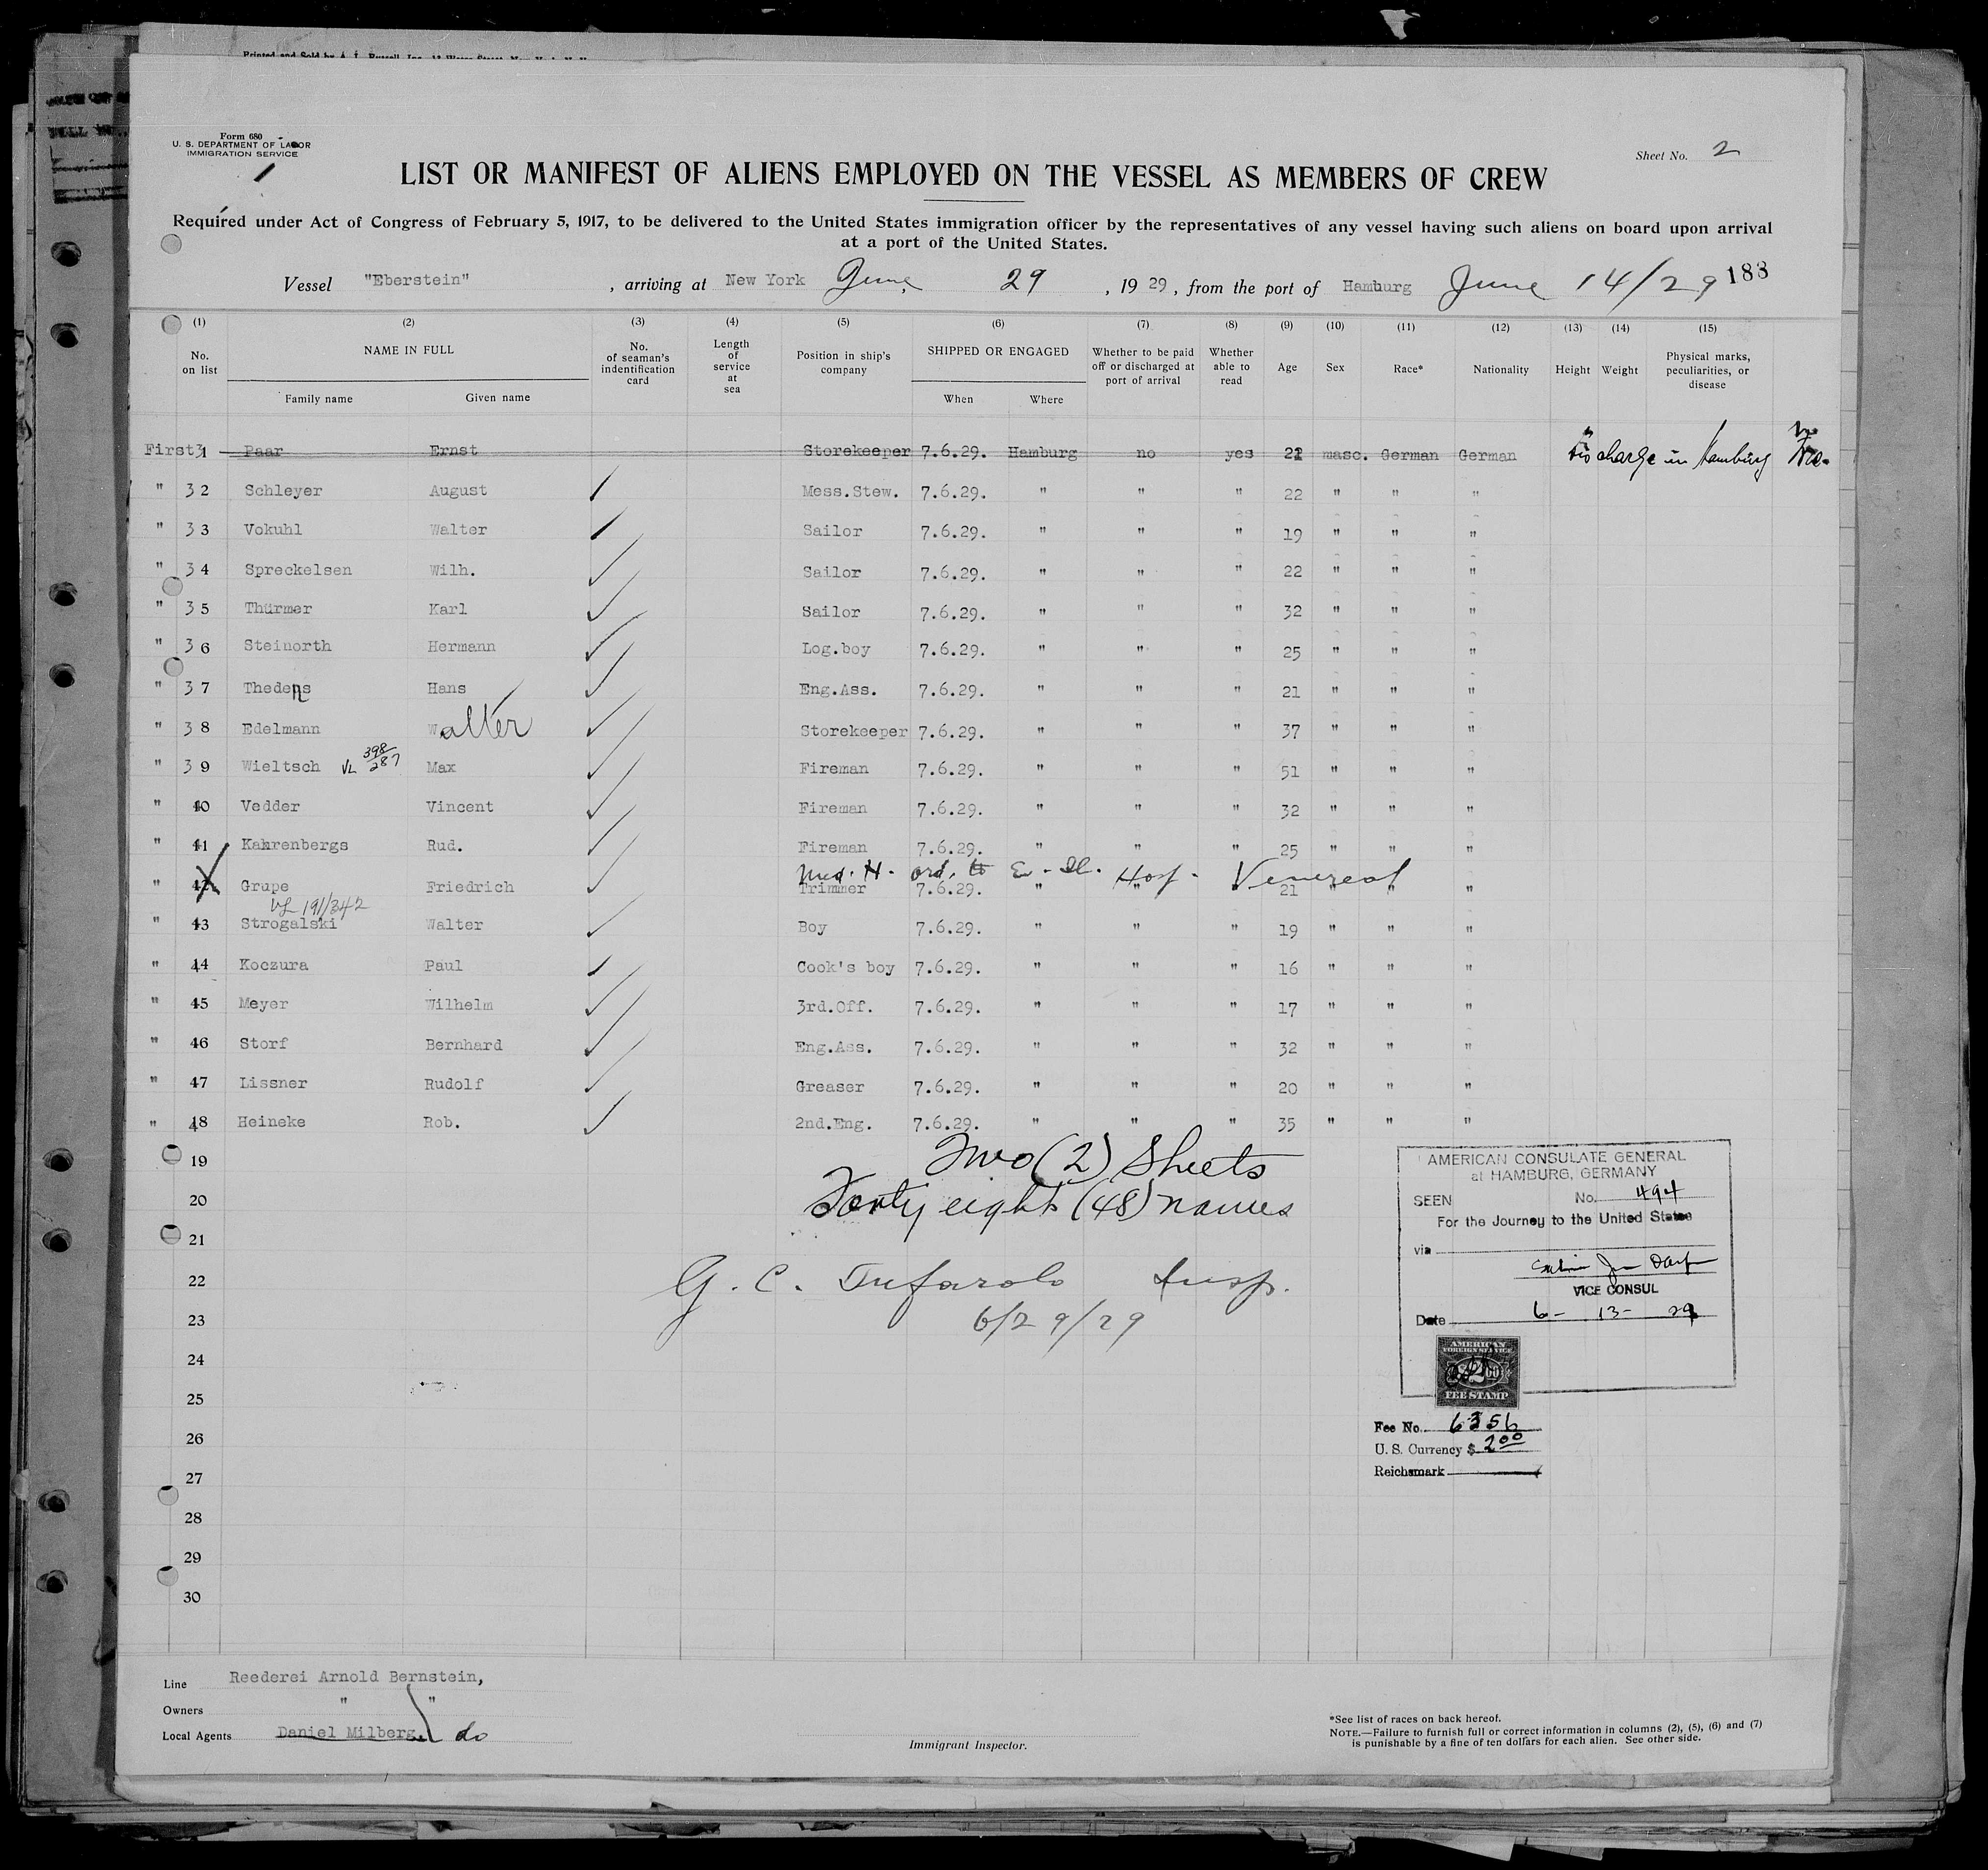 Printed and Sold by A. I. Russell, Inc.
Form 680
U. S. DEPARTMENT OF LABOR
IMMIGRATION SERVICE
Sheet No. 2
LIST OR MANIFEST OF ALIENS EMPLOYED ON THE VESSEL AS MEMBERS OF CREW
Required under Act of Congress of February 5, 1917, to be delivered to the United States immigration officer by the representatives of any vessel having such aliens on board upon arrival
at a port of the United States.
Vessel "Eberstein" , arriving at New York June 29 , 1929 , from the port of Hamburg June 14/29 183
(1) (2) (3) (4) (5) (6) (7) (8) (9) (10) (11) (12) (13) (14) (15)
No. on list NAME IN FULL No. of seaman's indentification card Length of service at sea Position in ship's company SHIPPED OR ENGAGED Whether to be paid off or discharged at port of arrival Whether able to read Age Sex Race* Nationality Height Weight Physical marks, peculiarities, or disease
Family name Given name When Where
First 31 Paar Ernst Storekeeper 7.6.29. Hamburg no yes 22 masc. German German Discharge in Hamburg
" 32 Schleyer August Mess.Stew. 7.6.29. " " " 22 " " "
" 33 Vokuhl Walter Sailor 7.6.29. " " " 19 " " "
" 34 Spreckelsen Wilh. Sailor 7.6.29. " " " 22 " " "
" 35 Thürmer Karl Sailor 7.6.29. " " " 32 " " "
" 36 Steinorth Hermann Log.boy 7.6.29. " " " 25 " " "
" 37 Thedens Hans Eng.Ass. 7.6.29. " " " 21 " " "
" 38 Edelmann Walter Storekeeper 7.6.29. " " " 37 " " "
" 39 Wieltsch VL 398/287 Max Fireman 7.6.29. " " " 51 " " "
" 40 Vedder Vincent Fireman 7.6.29. " " " 32 " " "
" 41 Kahrenbergs Rud. Fireman 7.6.29. " " " 25 " " "
Med. H. ord. to E. Il. Hosp. Venereal
" 42 Grupe Friedrich Trimmer 7.6.29. " " " 21 " " "
VL 191/342
" 43 Strogalski Walter Boy 7.6.29. " " " 19 " " "
" 44 Koczura Paul Cook's boy 7.6.29. " " " 16 " " "
" 45 Meyer Wilhelm 3rd.Off. 7.6.29. " " " 17 " " "
" 46 Storf Bernhard Eng.Ass. 7.6.29. " " " 32 " " "
" 47 Lissner Rudolf Greaser 7.6.29. " " " 20 " " "
" 48 Heineke Rob. 2nd.Eng. 7.6.29. " " " 35 " " "
19
Two (2) Sheets
20
Forty eight (48) names
21
22
G. C. Tufarolo Insp.
23
6/29/29
24
25
26
27
28
29
30
AMERICAN CONSULATE GENERAL
at HAMBURG, GERMANY
SEEN No. 494
For the Journey to the United States
via
VICE CONSUL
Date 6- 13- 29
AMERICAN
FOREIGN SERVICE
$2.00
FEE STAMP
Fee No. 6356
U. S. Currency $ 2.00
Reichsmark
Line Reederei Arnold Bernstein,
Owners " "
Local Agents Daniel Milberg. do
Immigrant Inspector.
*See list of races on back hereof.
NOTE.—Failure to furnish full or correct information in columns (2), (5), (6) and (7)
is punishable by a fine of ten dollars for each alien. See other side.